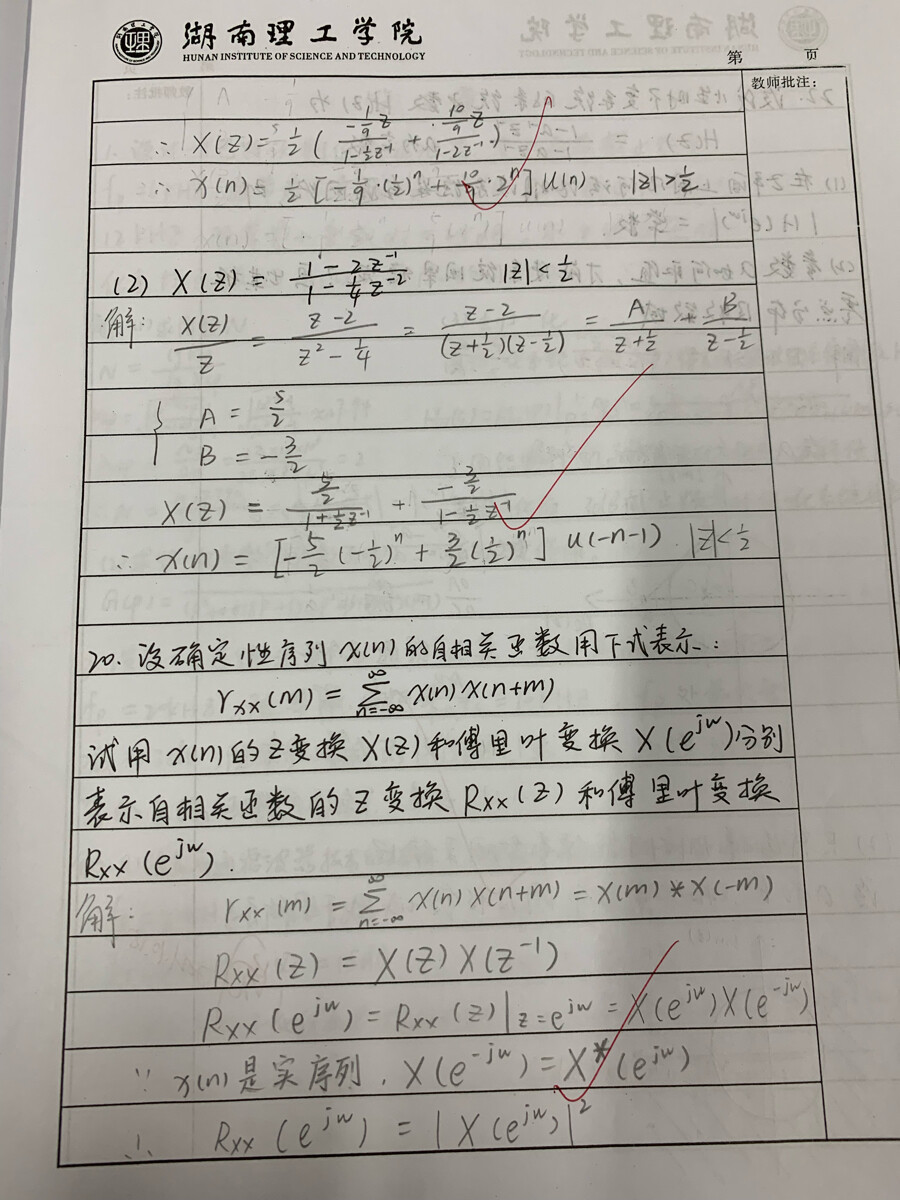 湖南理工学院
HUNAN INSTITUTE OF SCIENCE AND TECHNOLOGY
第 页
教师批注:
∴ X(Z) = 1/2 ( (-1/9 z)/(1-1/2 z⁻¹) + (10/9 z)/(1-2z⁻¹) )
∴ x(n) = 1/2 [-1/9·(1/2)ⁿ + 10/9·2ⁿ] u(n) |z|>1/2
(2) X(z) = (1-2z⁻¹)/(1-1/4 z⁻²) |z|<1/2
解: X(z)/z = (z-2)/(z²-1/4) = (z-2)/((z+1/2)(z-1/2)) = A/(z+1/2) + B/(z-1/2)
∴ { A = 5/2
B = -3/2
X(z) = (5/2)/(1+1/2 z⁻¹) + (-3/2)/(1-1/2 z⁻¹)
∴ x(n) = [-5/2 (-1/2)ⁿ + 3/2 (1/2)ⁿ] u(-n-1). |z|<1/2
20. 设确定性序列 x(n) 的自相关函数用下式表示:
rxx(m) = ∑_{n=-∞}^{∞} x(n) x(n+m)
试用 x(n) 的 Z变换 X(Z) 和傅里叶变换 X(e^{jw}) 分别
表示自相关函数的 Z 变换 Rxx(z) 和傅里叶变换
Rxx(e^{jw}).
解: rxx(m) = ∑_{n=-∞}^{∞} x(n) x(n+m) = x(m) * x(-m)
Rxx(z) = X(z) X(z⁻¹)
Rxx(e^{jw}) = Rxx(z)|_{z=e^{jw}} = X(e^{jw}) X(e^{-jw})
∵ x(n) 是实序列, X(e^{-jw}) = X*(e^{jw})
∴ Rxx(e^{jw}) = |X(e^{jw})|²